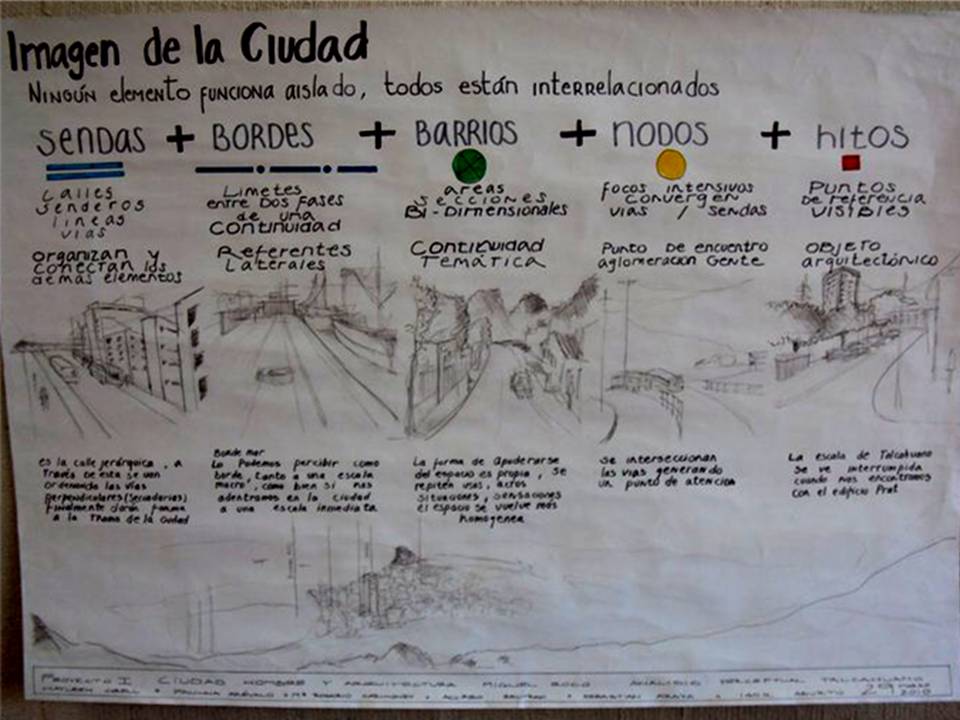 Imagen de la Ciudad
NINGÚN elemento FUNCIONA aislado, todos están INTERRELACIONADOS
SENDAS + BORDES + BARRIOS + NODOS + hitos
Calles
Senderos
lineas
vias
organizan y
conectan los
demas elementos
Limetes
entre Dos Fases
de una
Continuidad
Referentes
Laterales
areas
secciones
Bi-Dimensionales
Continuidad
Temática
Focos intensivos
convergen
vias / sendas
Punto de encuentro
aglomeracion Gente
Puntos
De referencia
visibles
Objeto
arquitectónico
es la calle jerárquica, a
Través de esta se van
ordenando las vías
Perpendiculares (Secundarias)
Finalmente darán forma
a la Trama de la Ciudad
Borde mar
Lo Podemos percibir como
borde, tanto a una escala
macro, como bien si nos
adentramos en la ciudad
a una escala inmediata
La forma de Apoderarse
del espacio es propia, se
repiten usos, actos
situaciones, sensaciones
el espacio se vuelve más
homogenea
Se interseccionan
las vias generando
un punto de atencion
La escala de Talcahuano
se ve interrumpida
cuando nos encontramos
con el edificio Prat
Proyecto I Ciudad Hombre y Arquitectura Miguel Analisis Perceptual Talcahuano
29 2010